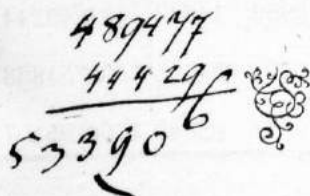 489477
44429
533906